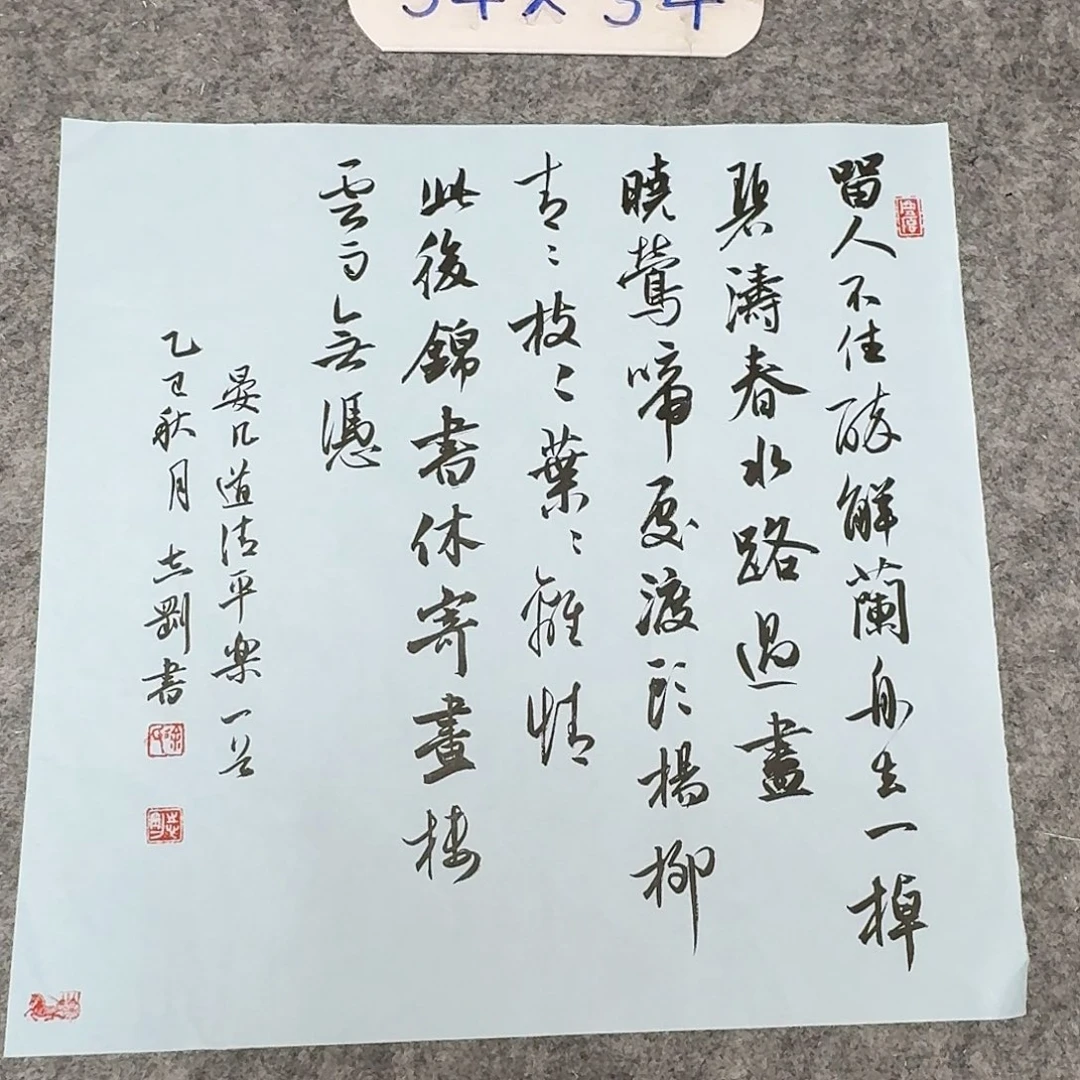 留人不住醉解蘭舟去一棹
碧濤春水路過盡
曉鶯啼處渡頭楊柳
青〻枝〻葉〻離情
此後錦書休寄畫樓
雲雨無憑
晏几道清平樂一首
乙巳秋月志剛書
徐氏
志剛